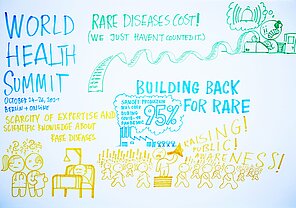 WORLD
HEALTH
SUMMIT
OCTOBER 24-26, 2021
BERLIN + ONLINE
RARE DISEASES COST!
(WE JUST HAVEN'T COUNTED IT)
SCARCITY OF EXPERTISE AND
SCIENTIFIC KNOWLEDGE ABOUT
RARE DISEASES
BUILDING BACK
FOR RARE
95%
RAISING!
PUBLIC!
AWARENESS!